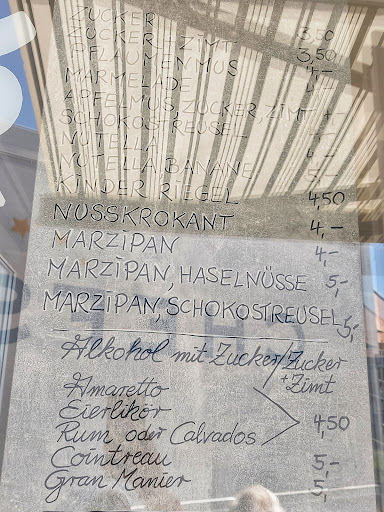 ZUCKER 3,50
ZUCKER + ZIMT 3,50
PFLAUMENMUS 4,-
MARMELADE
APFELMUS, ZUCKER, ZIMT
SCHOKOSTREUSEL
NUTELLA
NUTELLA BANANE 5,-
KINDER RIEGEL 4,50
NUSSKROKANT 4,-
MARZIPAN 4,-
MARZIPAN, HASELNÜSSE 5,-
MARZIPAN, SCHOKOSTREUSEL 5,-
Alkohol mit Zucker/Zucker
+Zimt
Amaretto
Eierlikör
Rum oder Calvados 4,50
Cointreau 5,-
Gran Manier 5,-